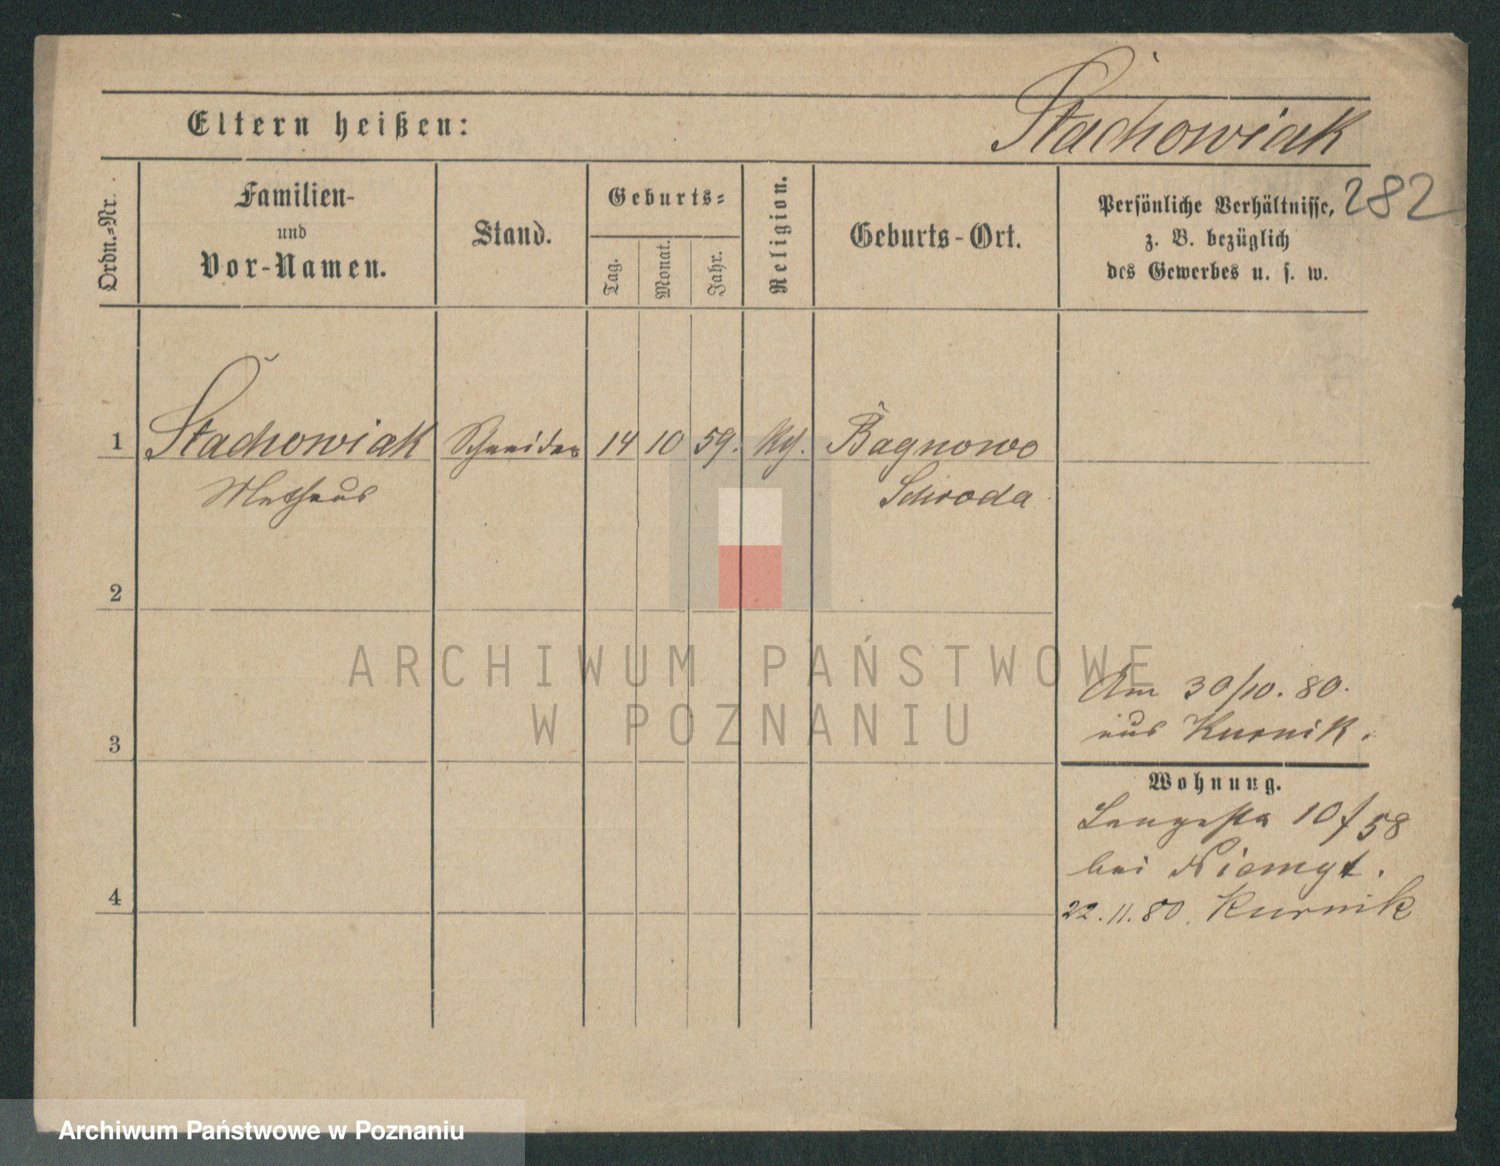 Stachowiak
Eltern heißen:
282
Ordn.-Nr.
Familien-
und
Vor-Namen.
Stand.
Geburts-
Tag.
Monat.
Jahr.
Religion.
Geburts-Ort.
Persönliche Verhältnisse,
z. B. bezüglich
des Gewerbes u. s. w.
1 Stachowiak Schneider 14 10 59. Bagnowo
Matheus Schroda
2
ARCHIWUM PAŃSTWOWE
W POZNANIU
Am 30/10. 80.
aus Kurnik.
3
Wohnung.
10/58
bei
4
22.11.80. Kurnik
Archiwum Państwowe w Poznaniu